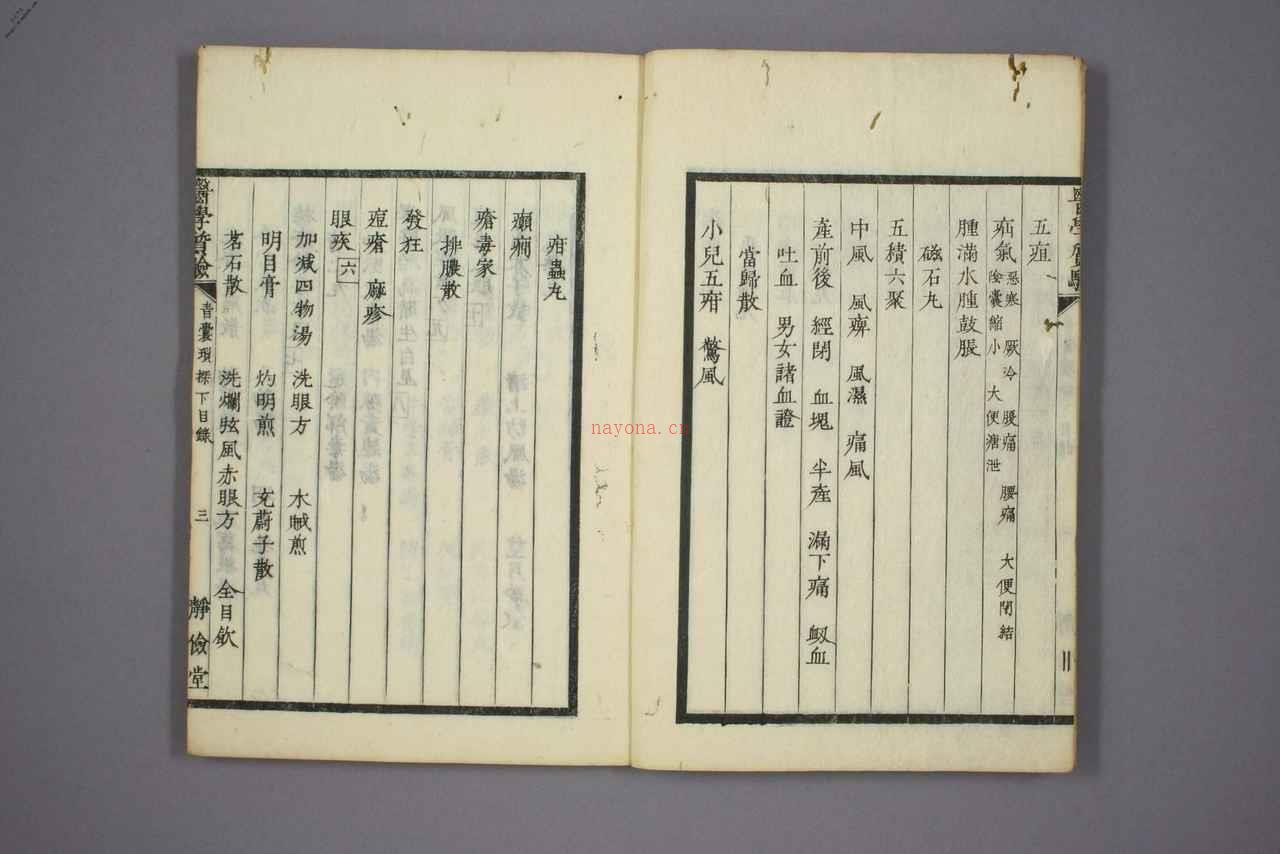 五疸
疝氣 惡寒 厥冷 腹痛 腰痛 大便閉結
陰囊縮小 大便溏泄
腫滿水腫鼓脹
磁石丸
五積六聚
中風 風痹 風濕 痛風
產前後 經閉 血塊 半產 漏下痛 衂血
吐血 男女諸血證
當歸散
小兒五疳 驚風
疳蟲丸
癲癇
瘡毒家
排膿散
發狂
痘瘡 麻疹
眼疾 六
加減四物湯 洗眼方 木賊煎
明目膏 灼明煎 茺蔚子散
茗石散 洗爛眩風赤眼方 全目飲
醫學質驗
青囊瑣探下目錄 三
靜儉堂
nayona.cn